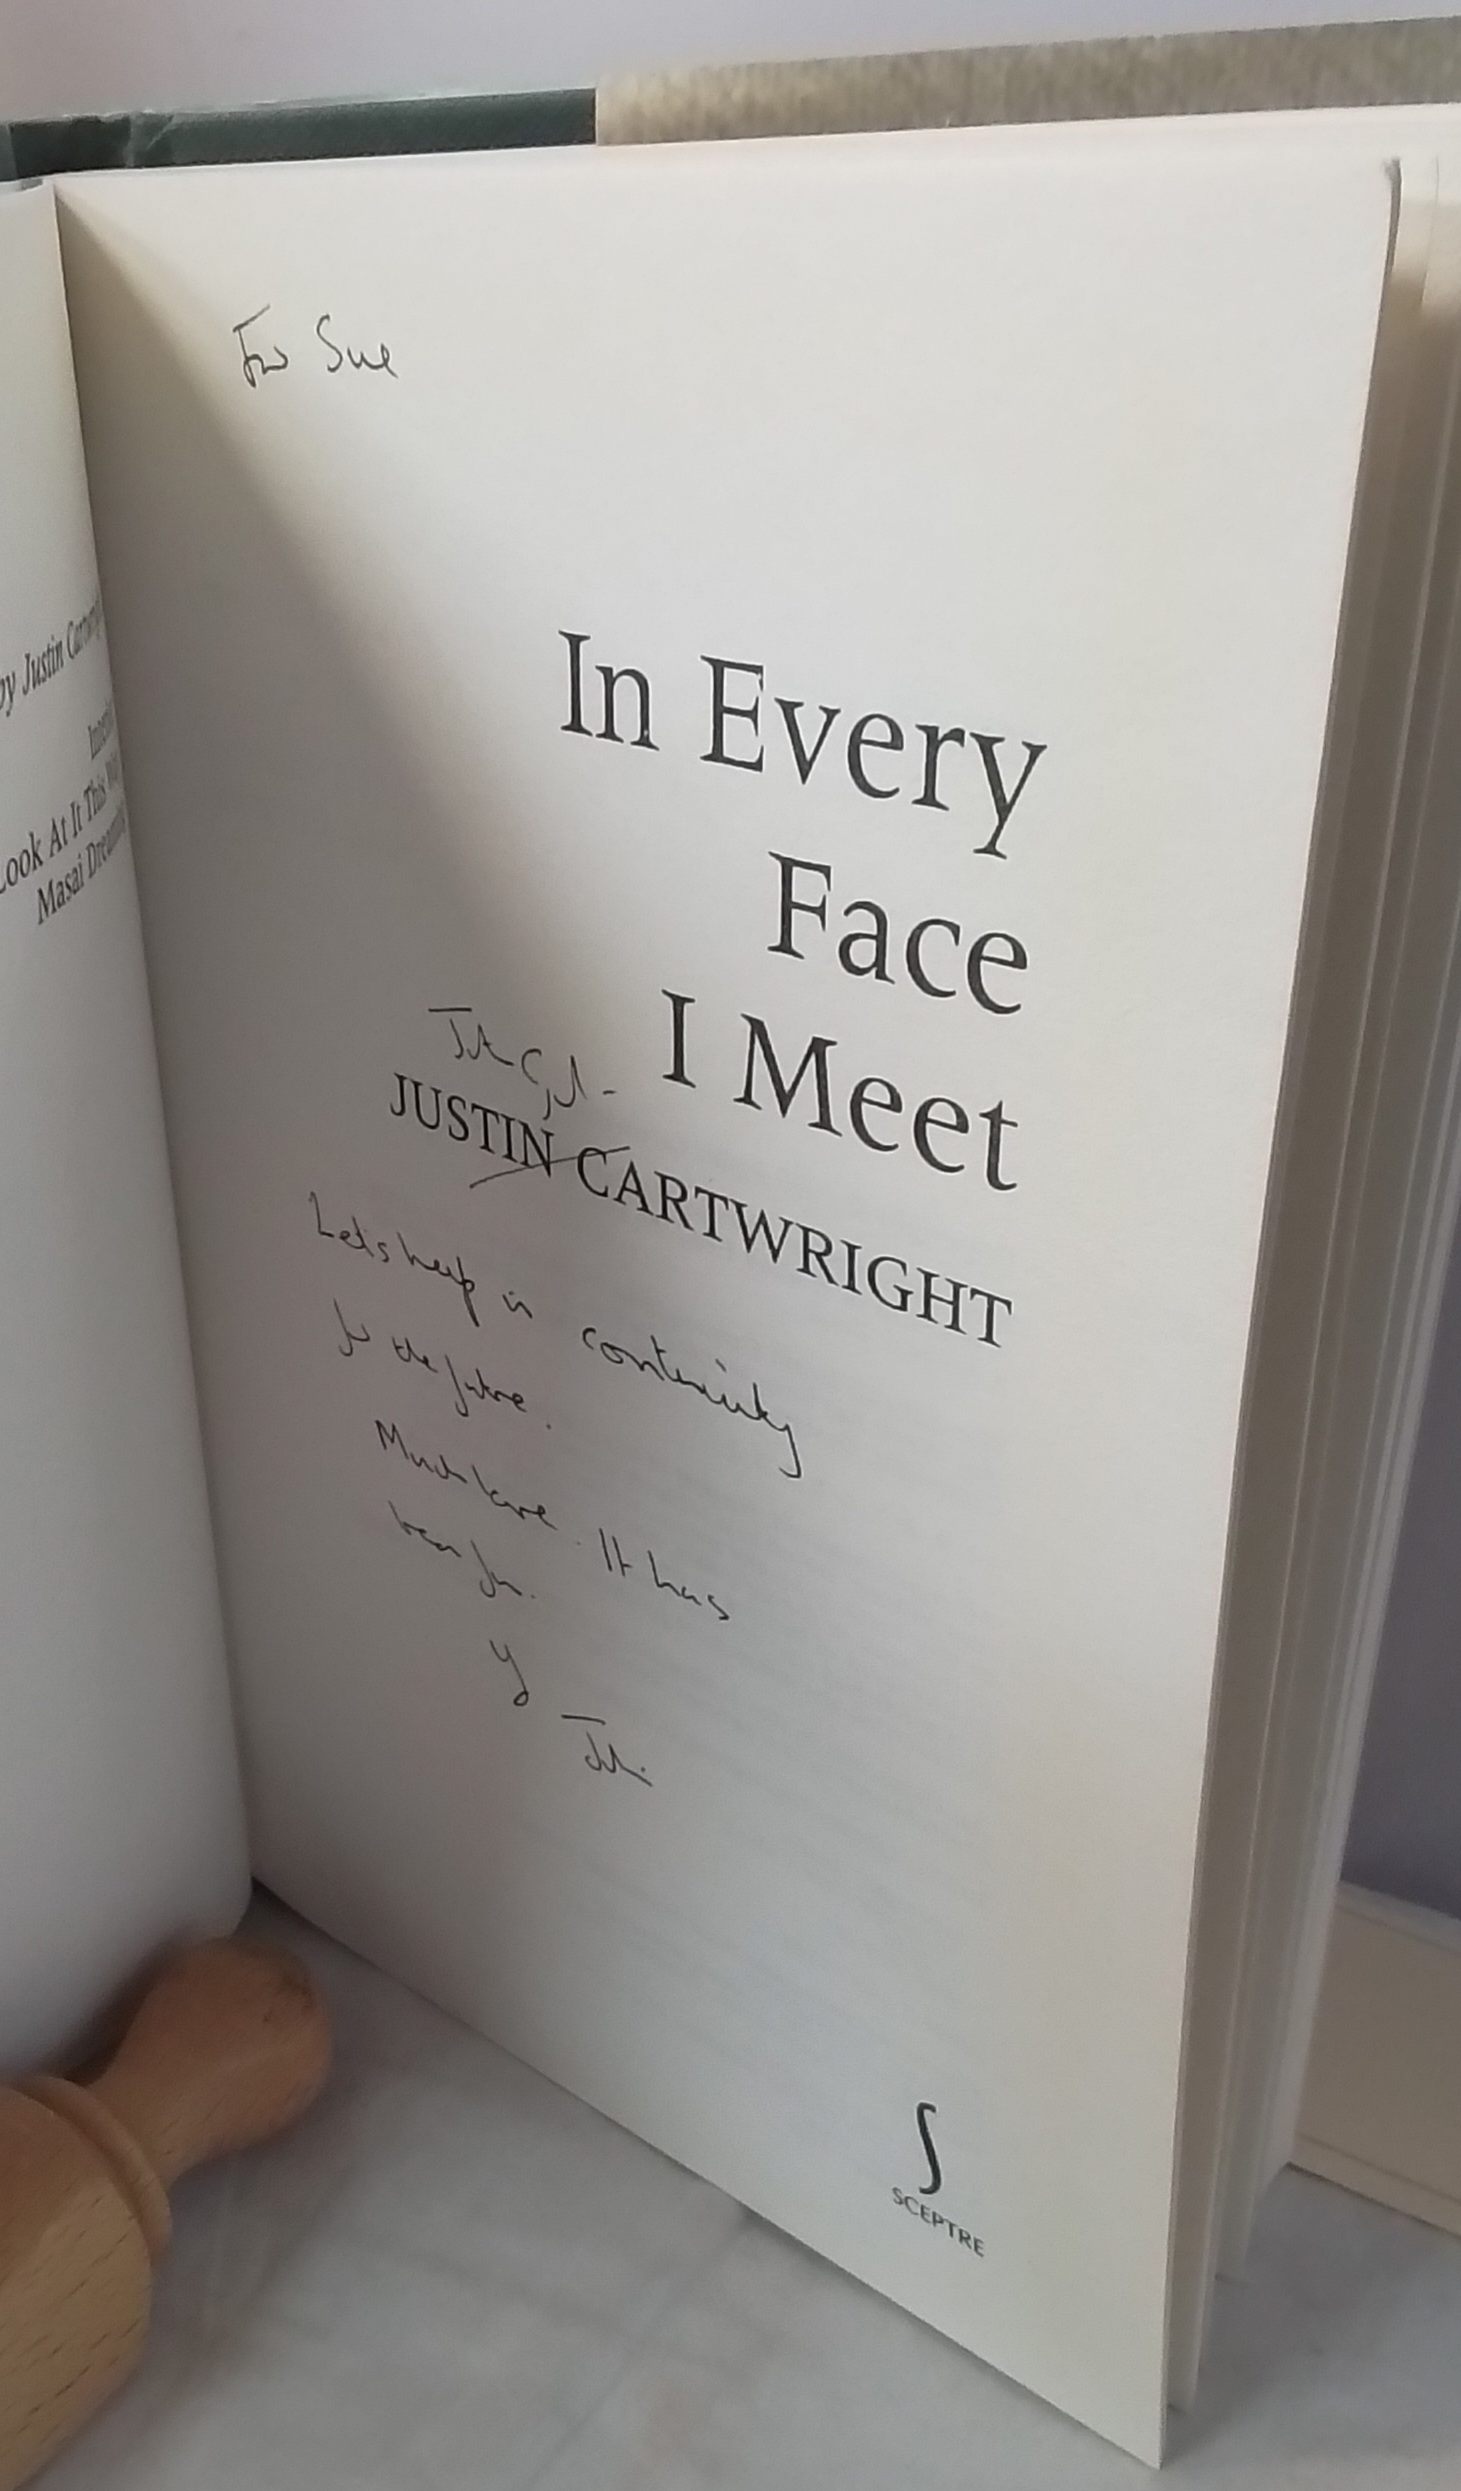 by Justin Cartwrig
Interio
Look At It This Wa
Masai Dreamin
For Sue
In Every
Face
I Meet
JUSTIN CARTWRIGHT
Lets keep in continuity
for the future.
Much love. It has
been fun.
SCEPTRE